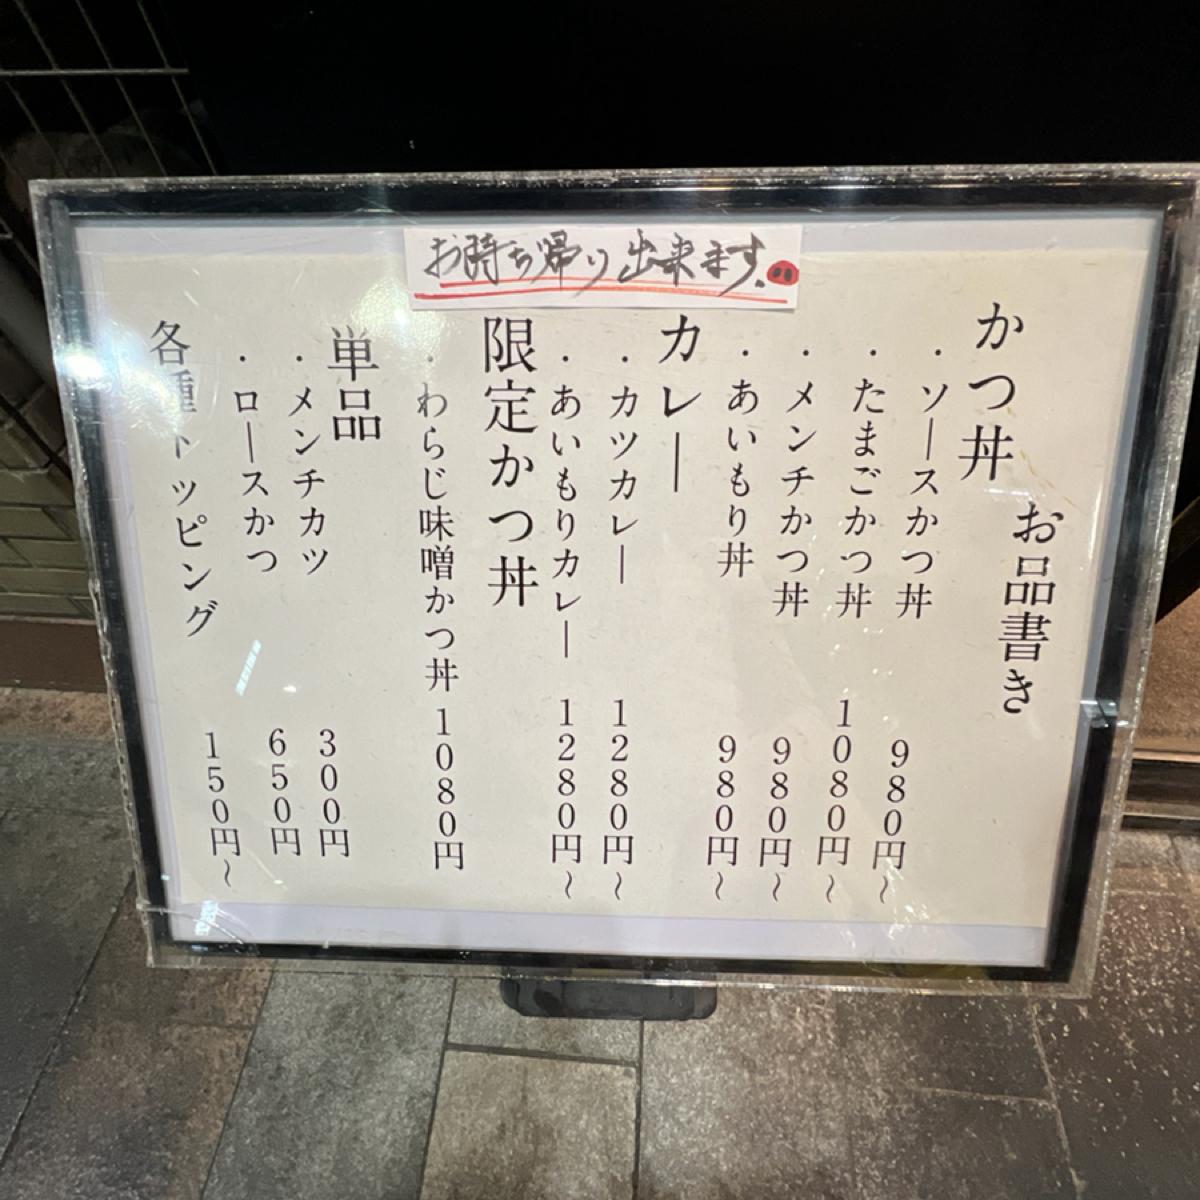 お持ち帰り出来ます。
お品書き
かつ丼
・ソースかつ丼 980円~
・たまごかつ丼 1080円~
・メンチかつ丼 980円~
・あいもり丼 980円~
カレー
・カツカレー 1280円~
・あいもりカレー 1280円~
限定かつ丼
・わらじ味噌かつ丼 1080円
単品
・メンチカツ 300円
・ロースかつ 650円
各種トッピング 150円~